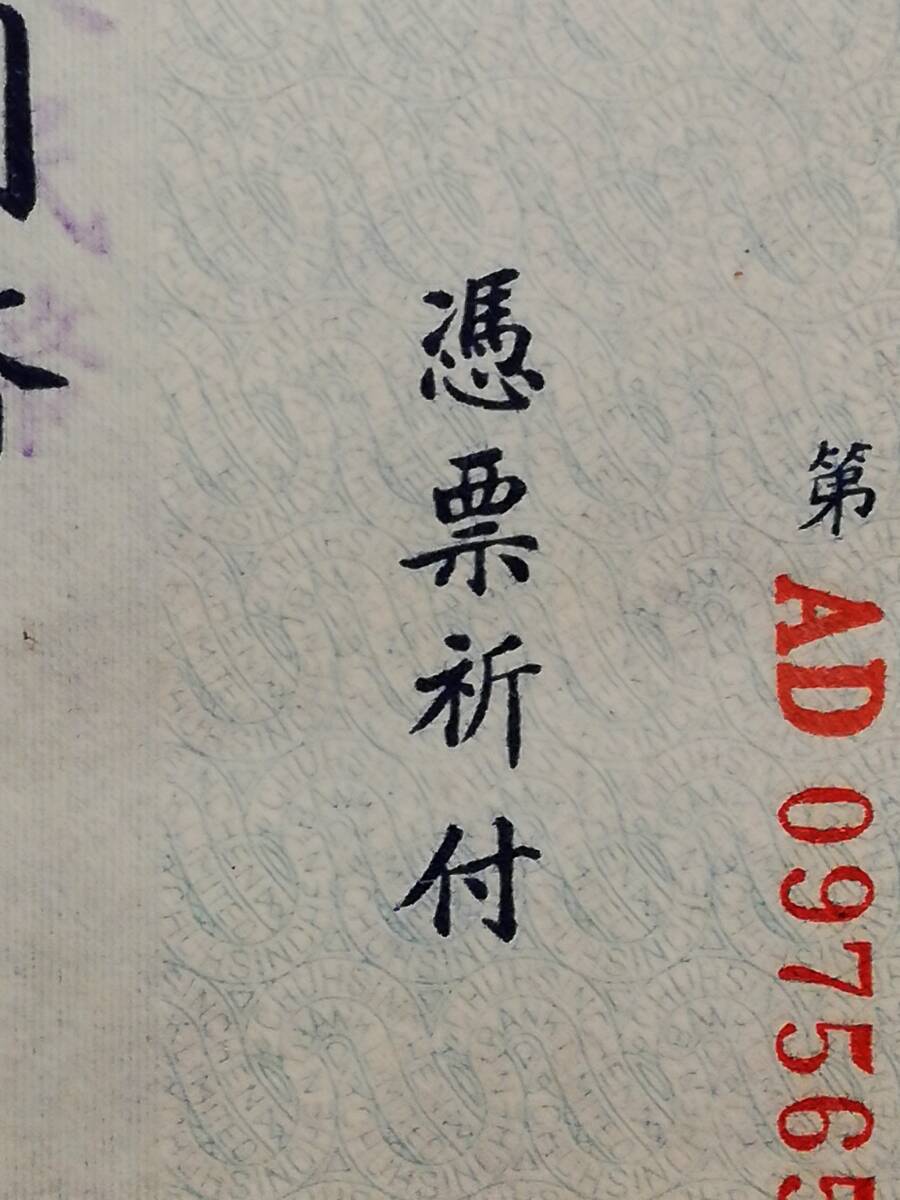 第 AD 097565
憑票祈付